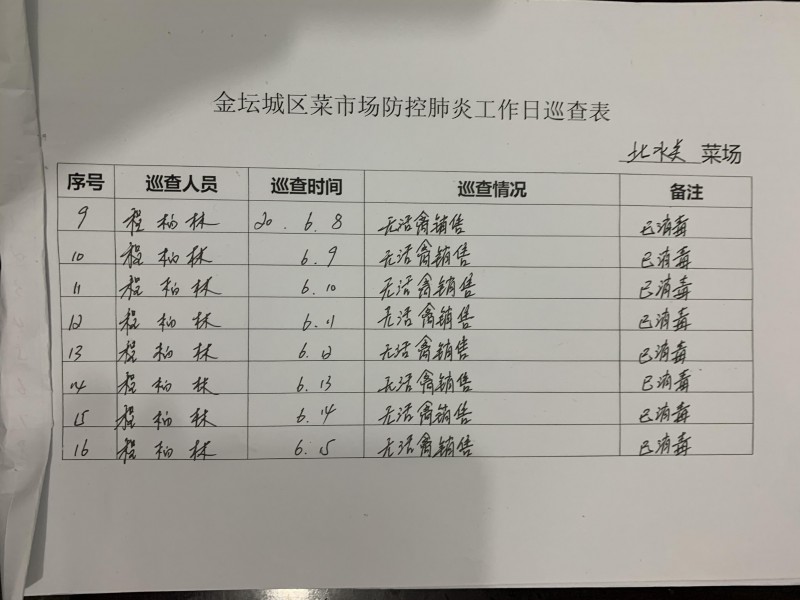 金坛城区菜市场防控肺炎工作日巡查表
北水关 菜场
序号 巡查人员 巡查时间 巡查情况 备注
9 程柏林 20.6.8 无活禽销售 已消毒
10 程柏林 6.9 无活禽销售 已消毒
11 程柏林 6.10 无活禽销售 已消毒
12 程柏林 6.11 无活禽销售 已消毒
13 程柏林 6.12 无活禽销售 已消毒
14 程柏林 6.13 无活禽销售 已消毒
15 程柏林 6.14 无活禽销售 已消毒
16 程柏林 6.15 无活禽销售 已消毒